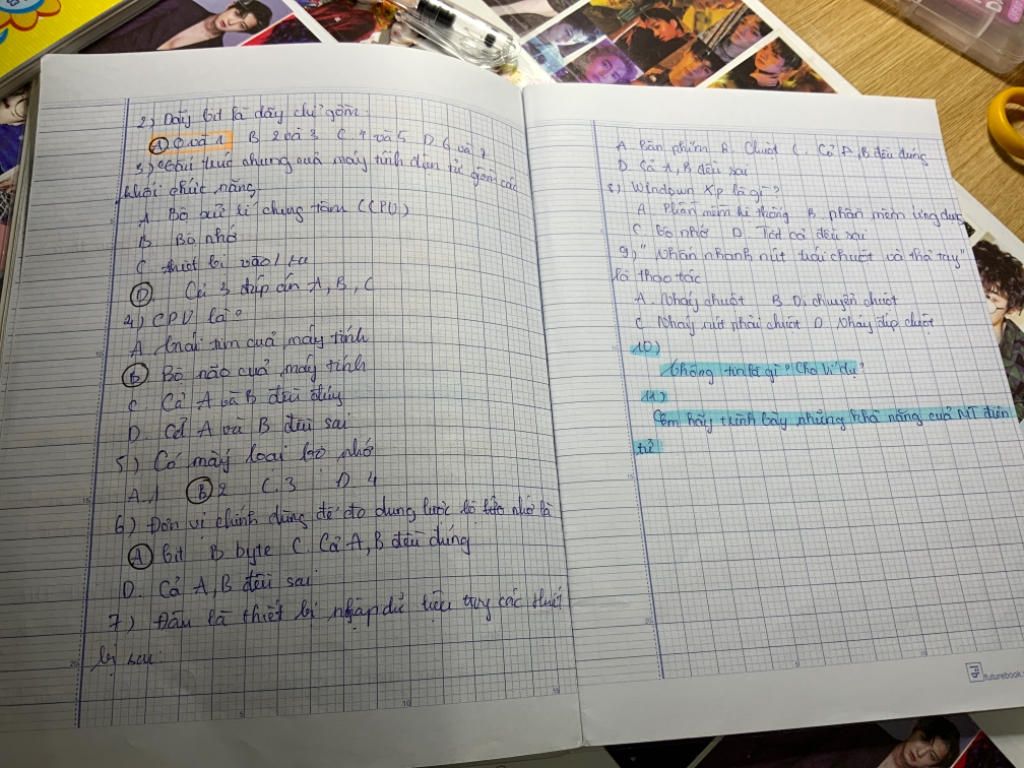 2) Dãy bit là dãy chỉ gồm
A 0 và 1 B 2 và 3 C 4 và 5 D 6 và 7
3) Cấu trúc chung của máy tính điện tử gồm các
khối chức năng
A Bộ xử lí chung tâm (CPU)
B Bộ nhớ
C thiết bị vào/ra
D. Cả 3 đáp án A, B, C
4) CPU là?
A trái tim của máy tính
B Bộ não của máy tính
C. Cả A và B đều đúng
D. Cả A và B đều sai
5) Có mấy loại bộ nhớ
A.1 B 2 C.3 D 4
6) Đơn vị chính dùng để đo dung lược bộ nhớ là
A bit B byte C. Cả A, B đều đúng
D. Cả A, B đều sai
7) Đâu là thiết bị nhập dữ liệu trong các thiết
bị sau
A Bàn phím B. Chuột C. Cả A, B đều đúng
D Cả A, B đều sai
8) Windown Xp là gì?
A. Phần mềm hệ thống B. phần mềm ứng dụng
C bộ nhớ D. Tất cả đều sai
9) "Nhấn nhanh nút trái chuột và thả tay"
là thao tác
A. Nháy chuột B Di chuyển chuột
C Nháy nút phải chuột D Nháy đúp chuột
10)
thông tin là gì? Cho ví dụ?
11)
Em hãy trình bày những khả năng của MT điện
tử
futurebook